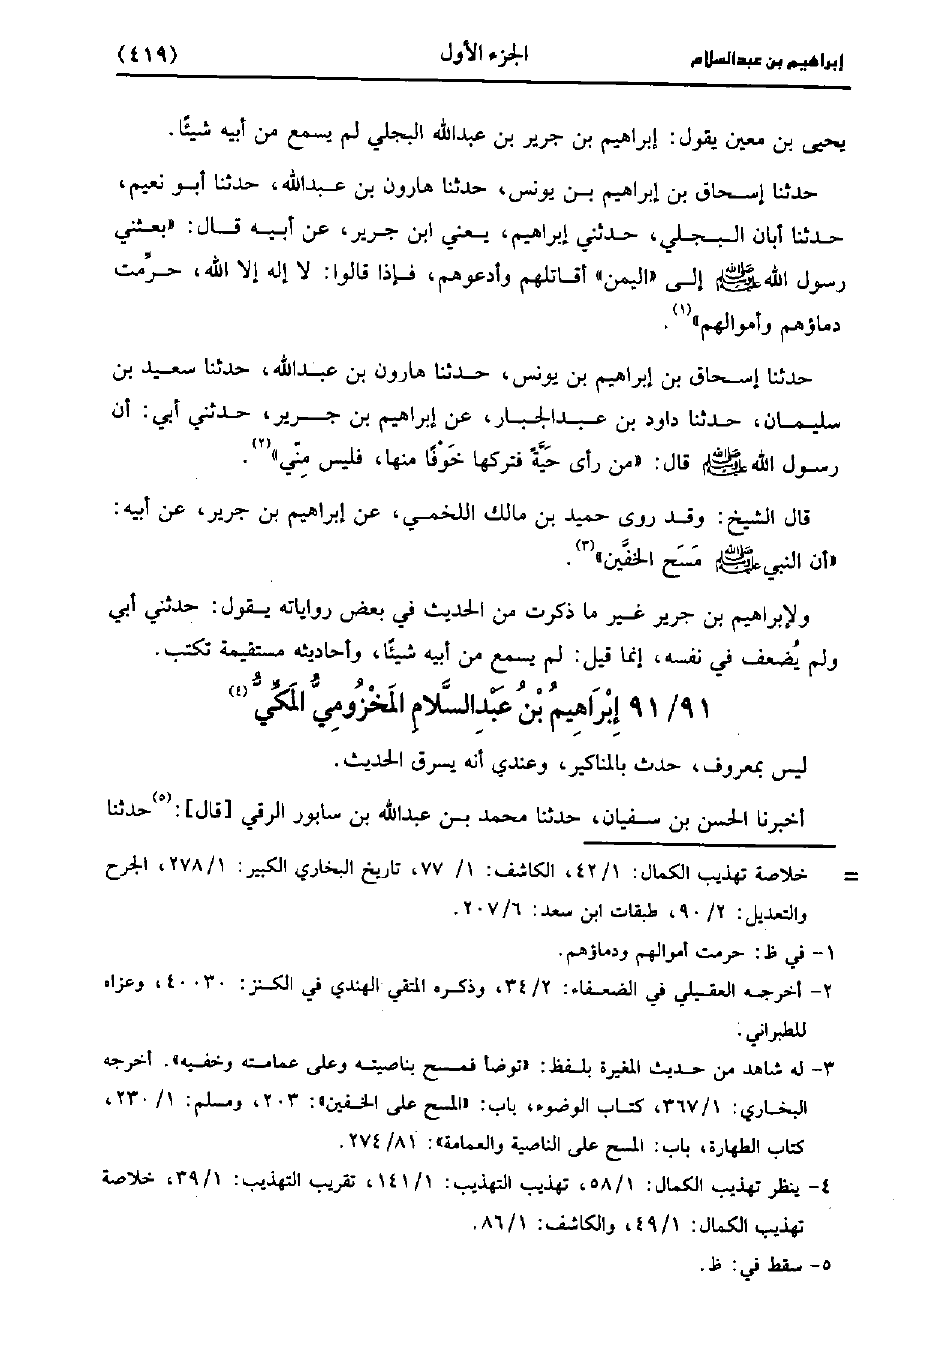 إبراهيم بن عبدالسلام الجزء الأول (٤١٩)
يحيى بن معين يقول: إبراهيم بن جرير بن عبدالله البجلي لم يسمع من أبيه شيئًا.
حدثنا إسحاق بن إبراهيم بن يونس، حدثنا هارون بن عبدالله، حدثنا أبو نعيم،
حدثنا أبان البجلي، حدثني إبراهيم، يعني ابن جرير، عن أبيه قال: «بعثني
رسول الله ﷺ إلى «اليمن» أقاتلهم وأدعوهم، فإذا قالوا: لا إله إلا الله، حرِّمت
دماؤهم وأموالهم»(١).
حدثنا إسحاق بن إبراهيم بن يونس، حدثنا هارون بن عبدالله، حدثنا سعيد بن
سليمان، حدثنا داود بن عبدالجبار، عن إبراهيم بن جرير، حدثني أبي: أن
رسول الله ﷺ قال: «من رأى حَيَّةً فتركها خَوْفًا منها، فليس مِنّي»(٢).
قال الشيخ: وقد روى حميد بن مالك اللخمي، عن إبراهيم بن جرير، عن أبيه:
«أن النبي ﷺ مَسَح الخفَّين»(٣).
ولإبراهيم بن جرير غير ما ذكرت من الحديث في بعض رواياته يقول: حدثني أبي
ولم يُضعف في نفسه، إنما قيل: لم يسمع من أبيه شيئًا، وأحاديثه مستقيمة تكتب.
٩١/ ٩١ إِبْرَاهِيمُ بْنُ عَبْدِالسَّلامِ المَخْزُومِيُّ المَكِّيُّ(٤)
ليس بمعروف، حدث بالمناكير، وعندي أنه يسرق الحديث.
أخبرنا الحسن بن سفيان، حدثنا محمد بن عبدالله بن سابور الرقي [قال]:(٥) حدثنا
= خلاصة تهذيب الكمال: ٤٢/١، الكاشف: ١/ ٧٧، تاريخ البخاري الكبير: ٢٧٨/١، الجرح
والتعديل: ٩٠/٢، طبقات ابن سعد: ٢٠٧/٦.
١- في ظ: حرمت أموالهم ودماؤهم.
٢- أخرجه العقيلي في الضعفاء: ٣٤/٢، وذكره المتقي الهندي في الكنز: ٤٠٠٣٠، وعزاه
للطبراني.
٣- له شاهد من حديث المغيرة بلفظ: «توضأ فمسح بناصيته وعلى عمامته وخفيه». أخرجه
البخاري: ٣٦٧/١، كتاب الوضوء، باب: «المسح على الخفين»: ٢٠٣، ومسلم: ١/ ٢٣٠،
كتاب الطهارة، باب: المسح على الناصية والعمامة»: ٢٧٤/٨١.
٤- ينظر تهذيب الكمال: ٥٨/١، تهذيب التهذيب: ١٤١/١، تقريب التهذيب: ٣٩/١، خلاصة
تهذيب الكمال: ٤٩/١، والكاشف: ٨٦/١.
٥- سقط في: ظ.